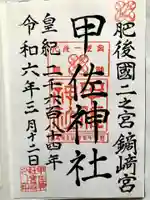 肥後國二之宮鏑崎宮
甲佐神社
皇紀二千六百八十四年
令和六年三月十二日